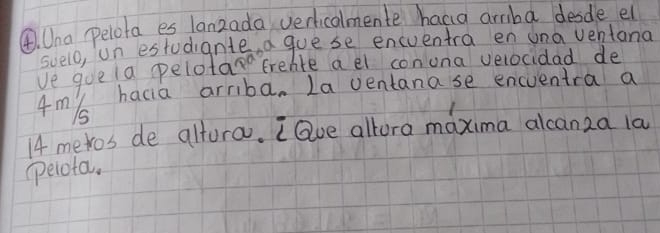 4. Una pelota es lanzada verticalmente hacia arriba desde el
suelo, un estudiante a que se encuentra en una ventana
ve que la pelota frente a el con una velocidad de
4m/s hacia arriba. La ventana se encuentra a
14 metros de altura. ¿Que altura máxima alcanza la
pelota.